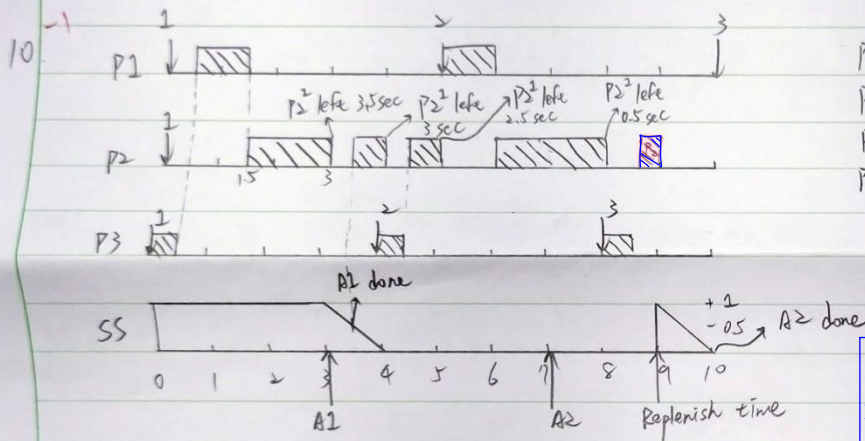 -1
10
1 2 3
P1
P2² left 3.5sec P2² left 3 sec P2² left 2.5 sec P2² left 0.5 sec
1
P2
1.5 3
P2
1 2 3
P3
A1 done
SS
+1
-05 A2 done
0 1 2 3 4 5 6 7 8 9 10
A1 A2 Replenish time